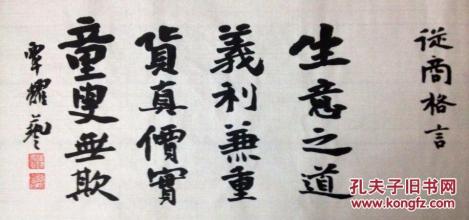 從商格言
生意之道
義利兼重
貨真價實
童叟無欺
覃耀藝
孔夫子旧书网
www.kongfz.com